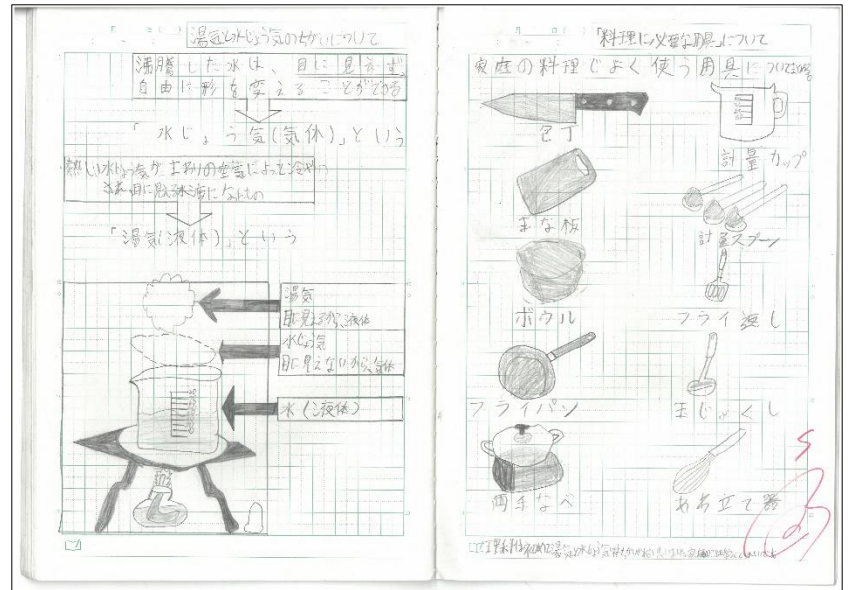 月 日( )
湯気と水じょう気のちがいについて
沸騰した水は、目に見えず、
自由に形を変えることができる
「水じょう気(気体)」という
熱い水じょう気が、まわりの空気によって冷やされ
目に見える水滴になったもの
「湯気(液体)」という
湯気
目に見えるから、液体
水じょう気
目に見えないから、気体
水(液体)
月 日
「料理に必要な用具」について
家庭の料理でよく使う用具について
包丁
計量カップ
まな板
計量スプーン
ボウル
フライ返し
フライパン
玉じゃくし
両手なべ
あわ立て器
5